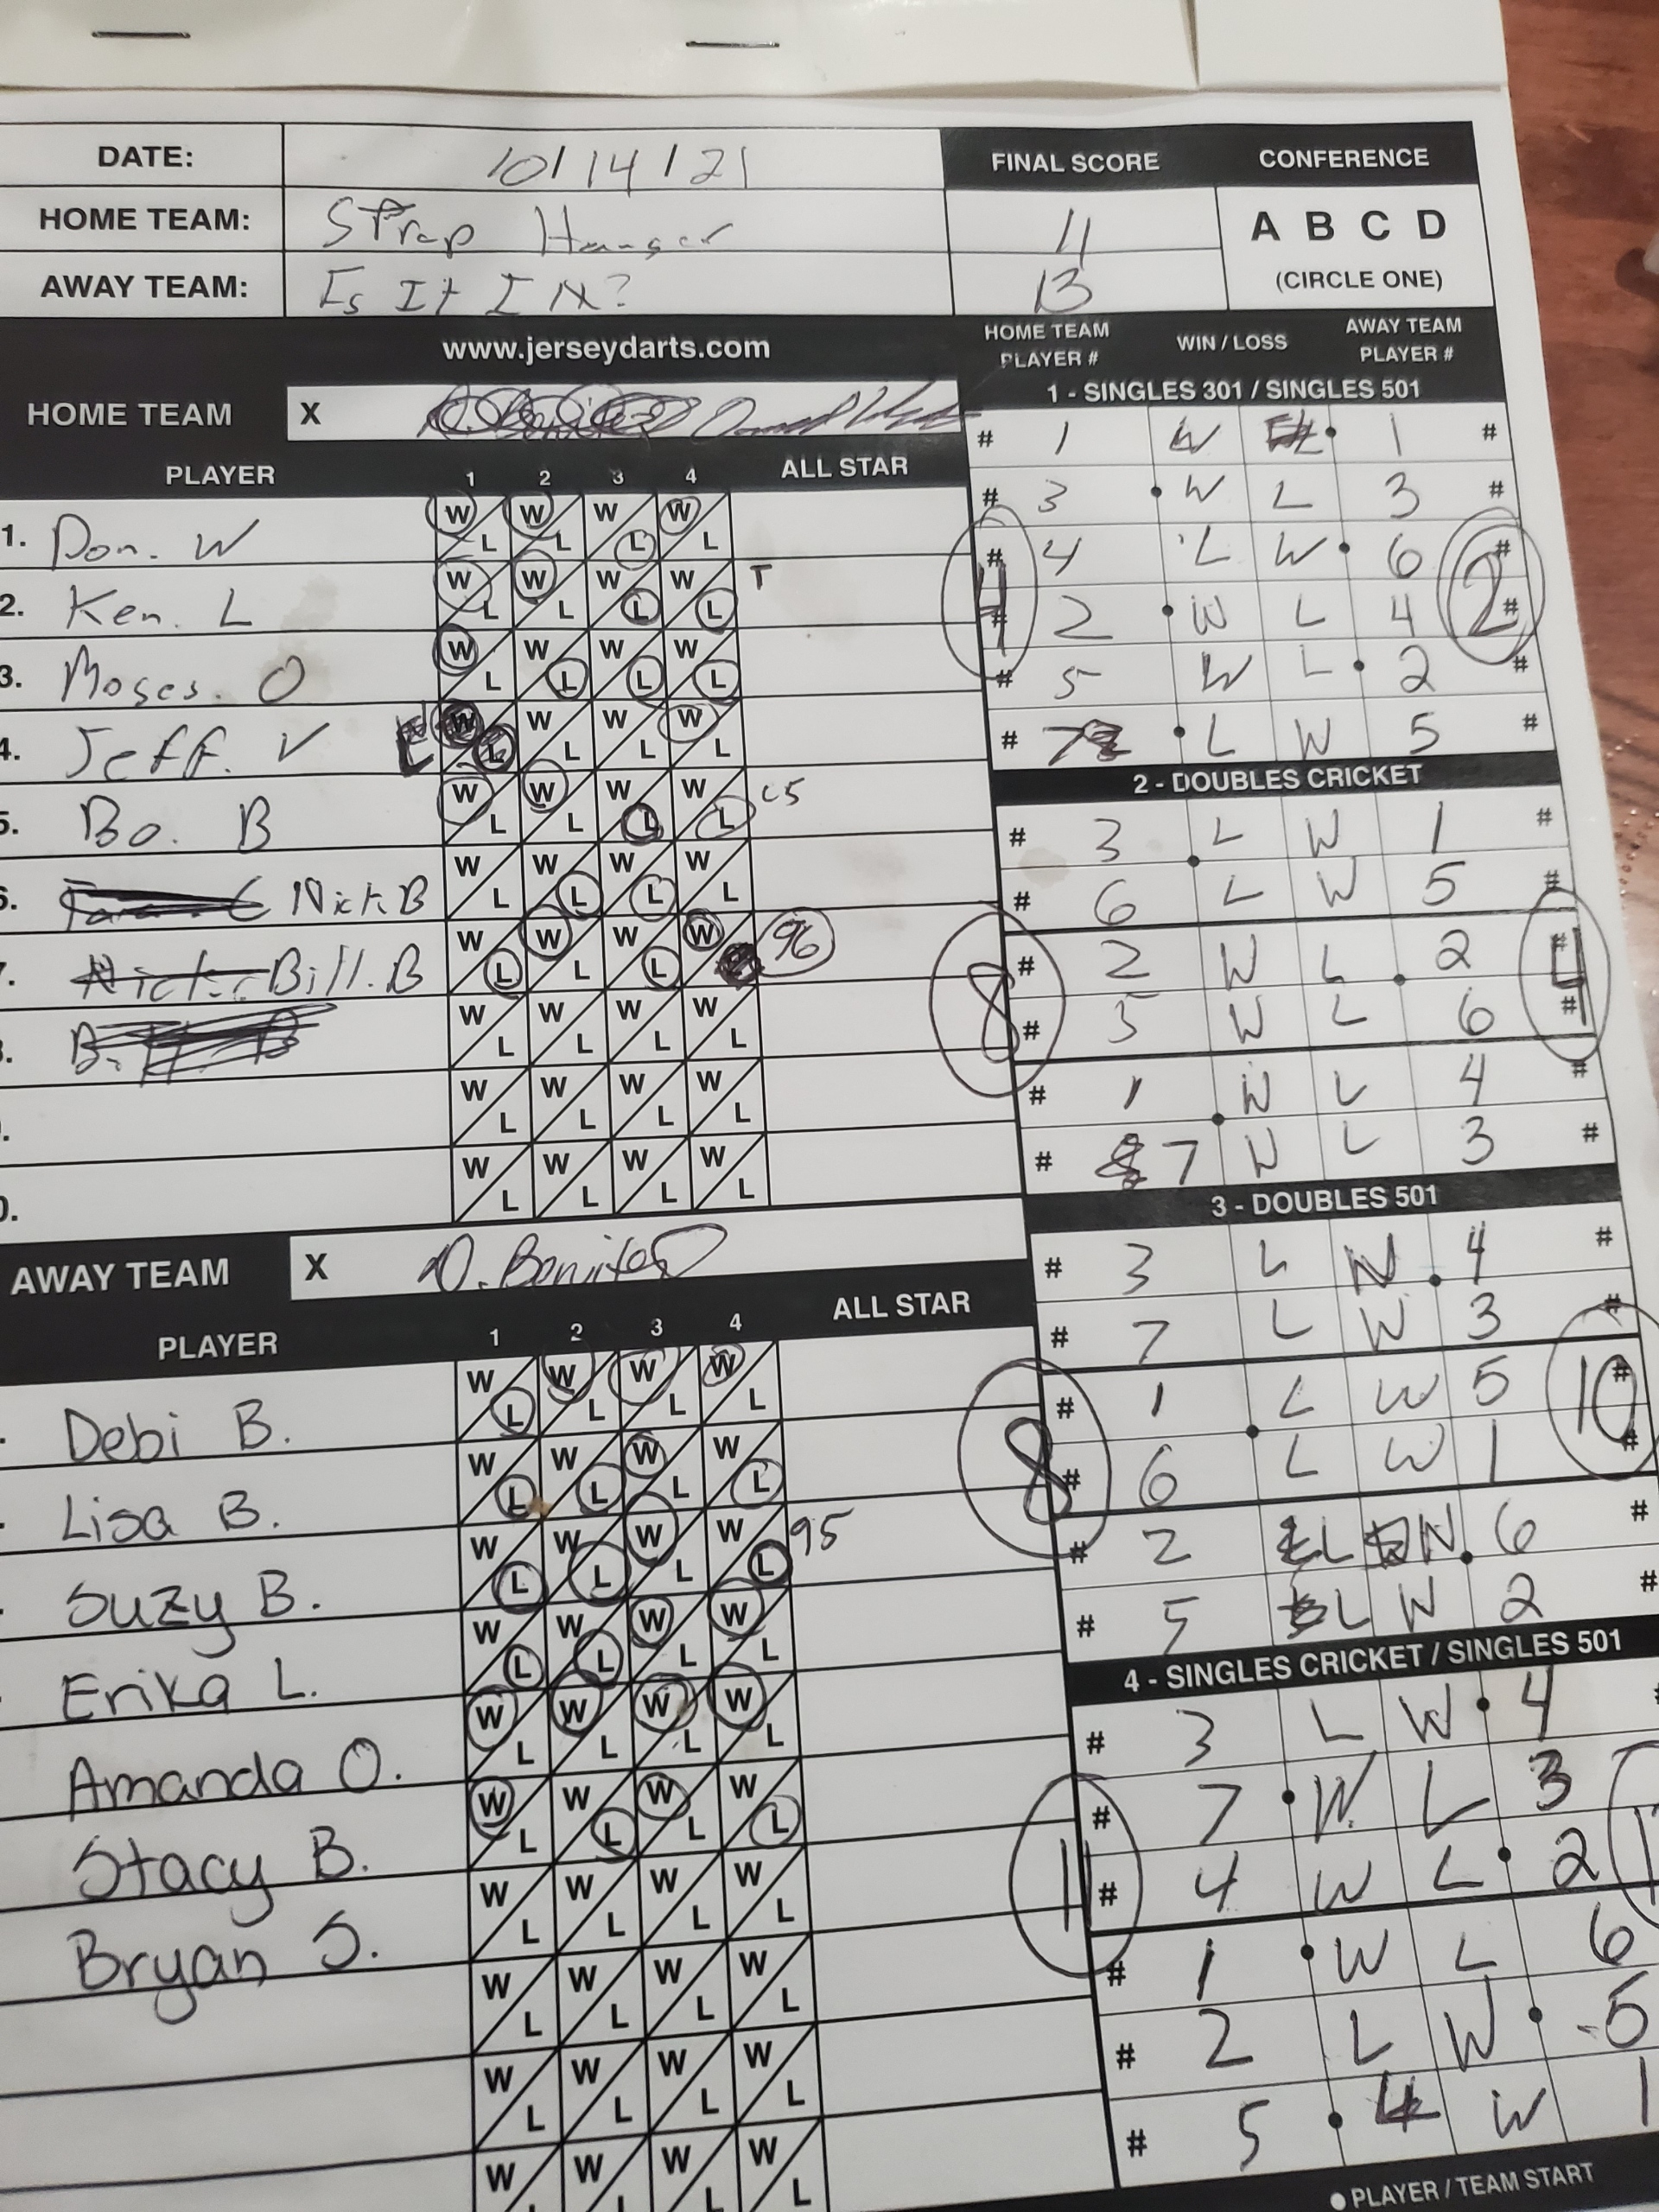 DATE: 10/14/21
FINAL SCORE CONFERENCE
HOME TEAM: Strap Hanger 11
A B C D
AWAY TEAM: Is It IN? 13
(CIRCLE ONE)
www.jerseydarts.com
HOME TEAM PLAYER # WIN / LOSS AWAY TEAM PLAYER #
HOME TEAM X
PLAYER 1 2 3 4 ALL STAR
1. Don. W W L W L W L W L
2. Ken. L W L W L W L W L T
3. Moses. O W L W L W L W L
4. Jeff. V W L W L W L W L
5. Bo. B W L W L W L W L C5
6. Nick B W L W L W L W L
7. Bill. B W L W L W L W 96
W L W L W L W L
W L W L W L W L
W L W L W L W L
1 - SINGLES 301 / SINGLES 501
# 1 W L 1 #
# 3 W L 3 #
# 4 L W 6 #
# 2 W L 4 #
# 5 W L 2 #
# 7 L W 5 #
4 2
2 - DOUBLES CRICKET
# 3 L W 1 #
# 6 L W 5 #
# 2 W L 2 #
# 5 W L 6 #
# 1 W L 4 #
# 7 W L 3 #
8 4
3 - DOUBLES 501
# 3 L W 4 #
# 7 L W 3 #
# 1 L W 5 #
# 6 L W 1 #
# 2 L W 6 #
# 5 L W 2 #
8 10
4 - SINGLES CRICKET / SINGLES 501
# 3 L W 4
# 7 W L 3
# 4 W L 2
# 1 W L 6
# 2 L W 5
# 5 L W 1
11
PLAYER / TEAM START
AWAY TEAM X D. Benitez
PLAYER 1 2 3 4 ALL STAR
Debi B. W L W L W L W L
Lisa B. W L W L W L W L
Suzy B. W L W L W L W L 95
Erika L. W L W L W L W L
Amanda O. W L W L W L W L
Stacy B. W L W L W L W L
Bryan S. W L W L W L W L
W L W L W L W L
W L W L W L W L
W W W W L